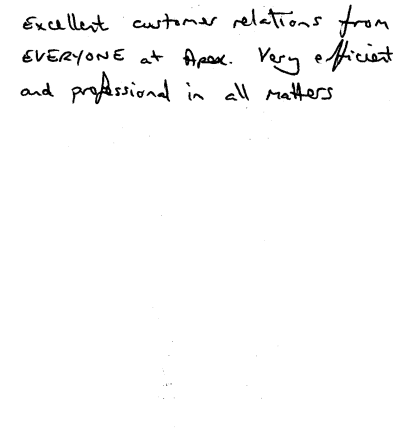 Excellent customer relations from
EVERYONE at Apex. Very efficient
and professional in all matters